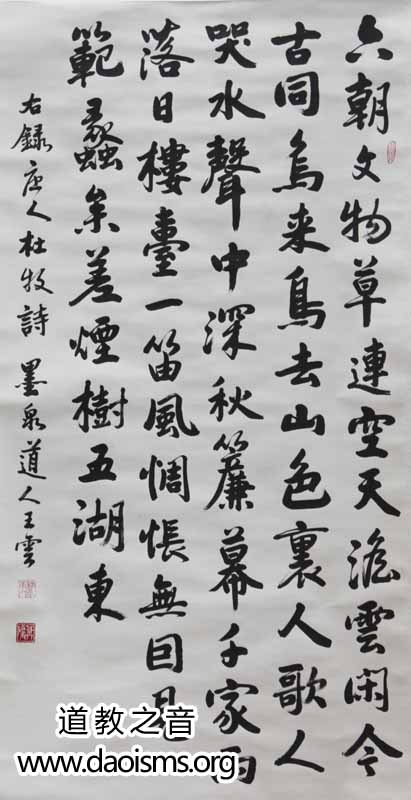 六朝文物草連空天澹雲閑今
古同鳥来鳥去山色裏人歌人
哭水聲中深秋簾幕千家雨
落日樓臺一笛風惆悵無因見
範蠡參差煙樹五湖東
右錄唐人杜牧詩 墨泉道人王雲
道教之音
www.daoisms.org